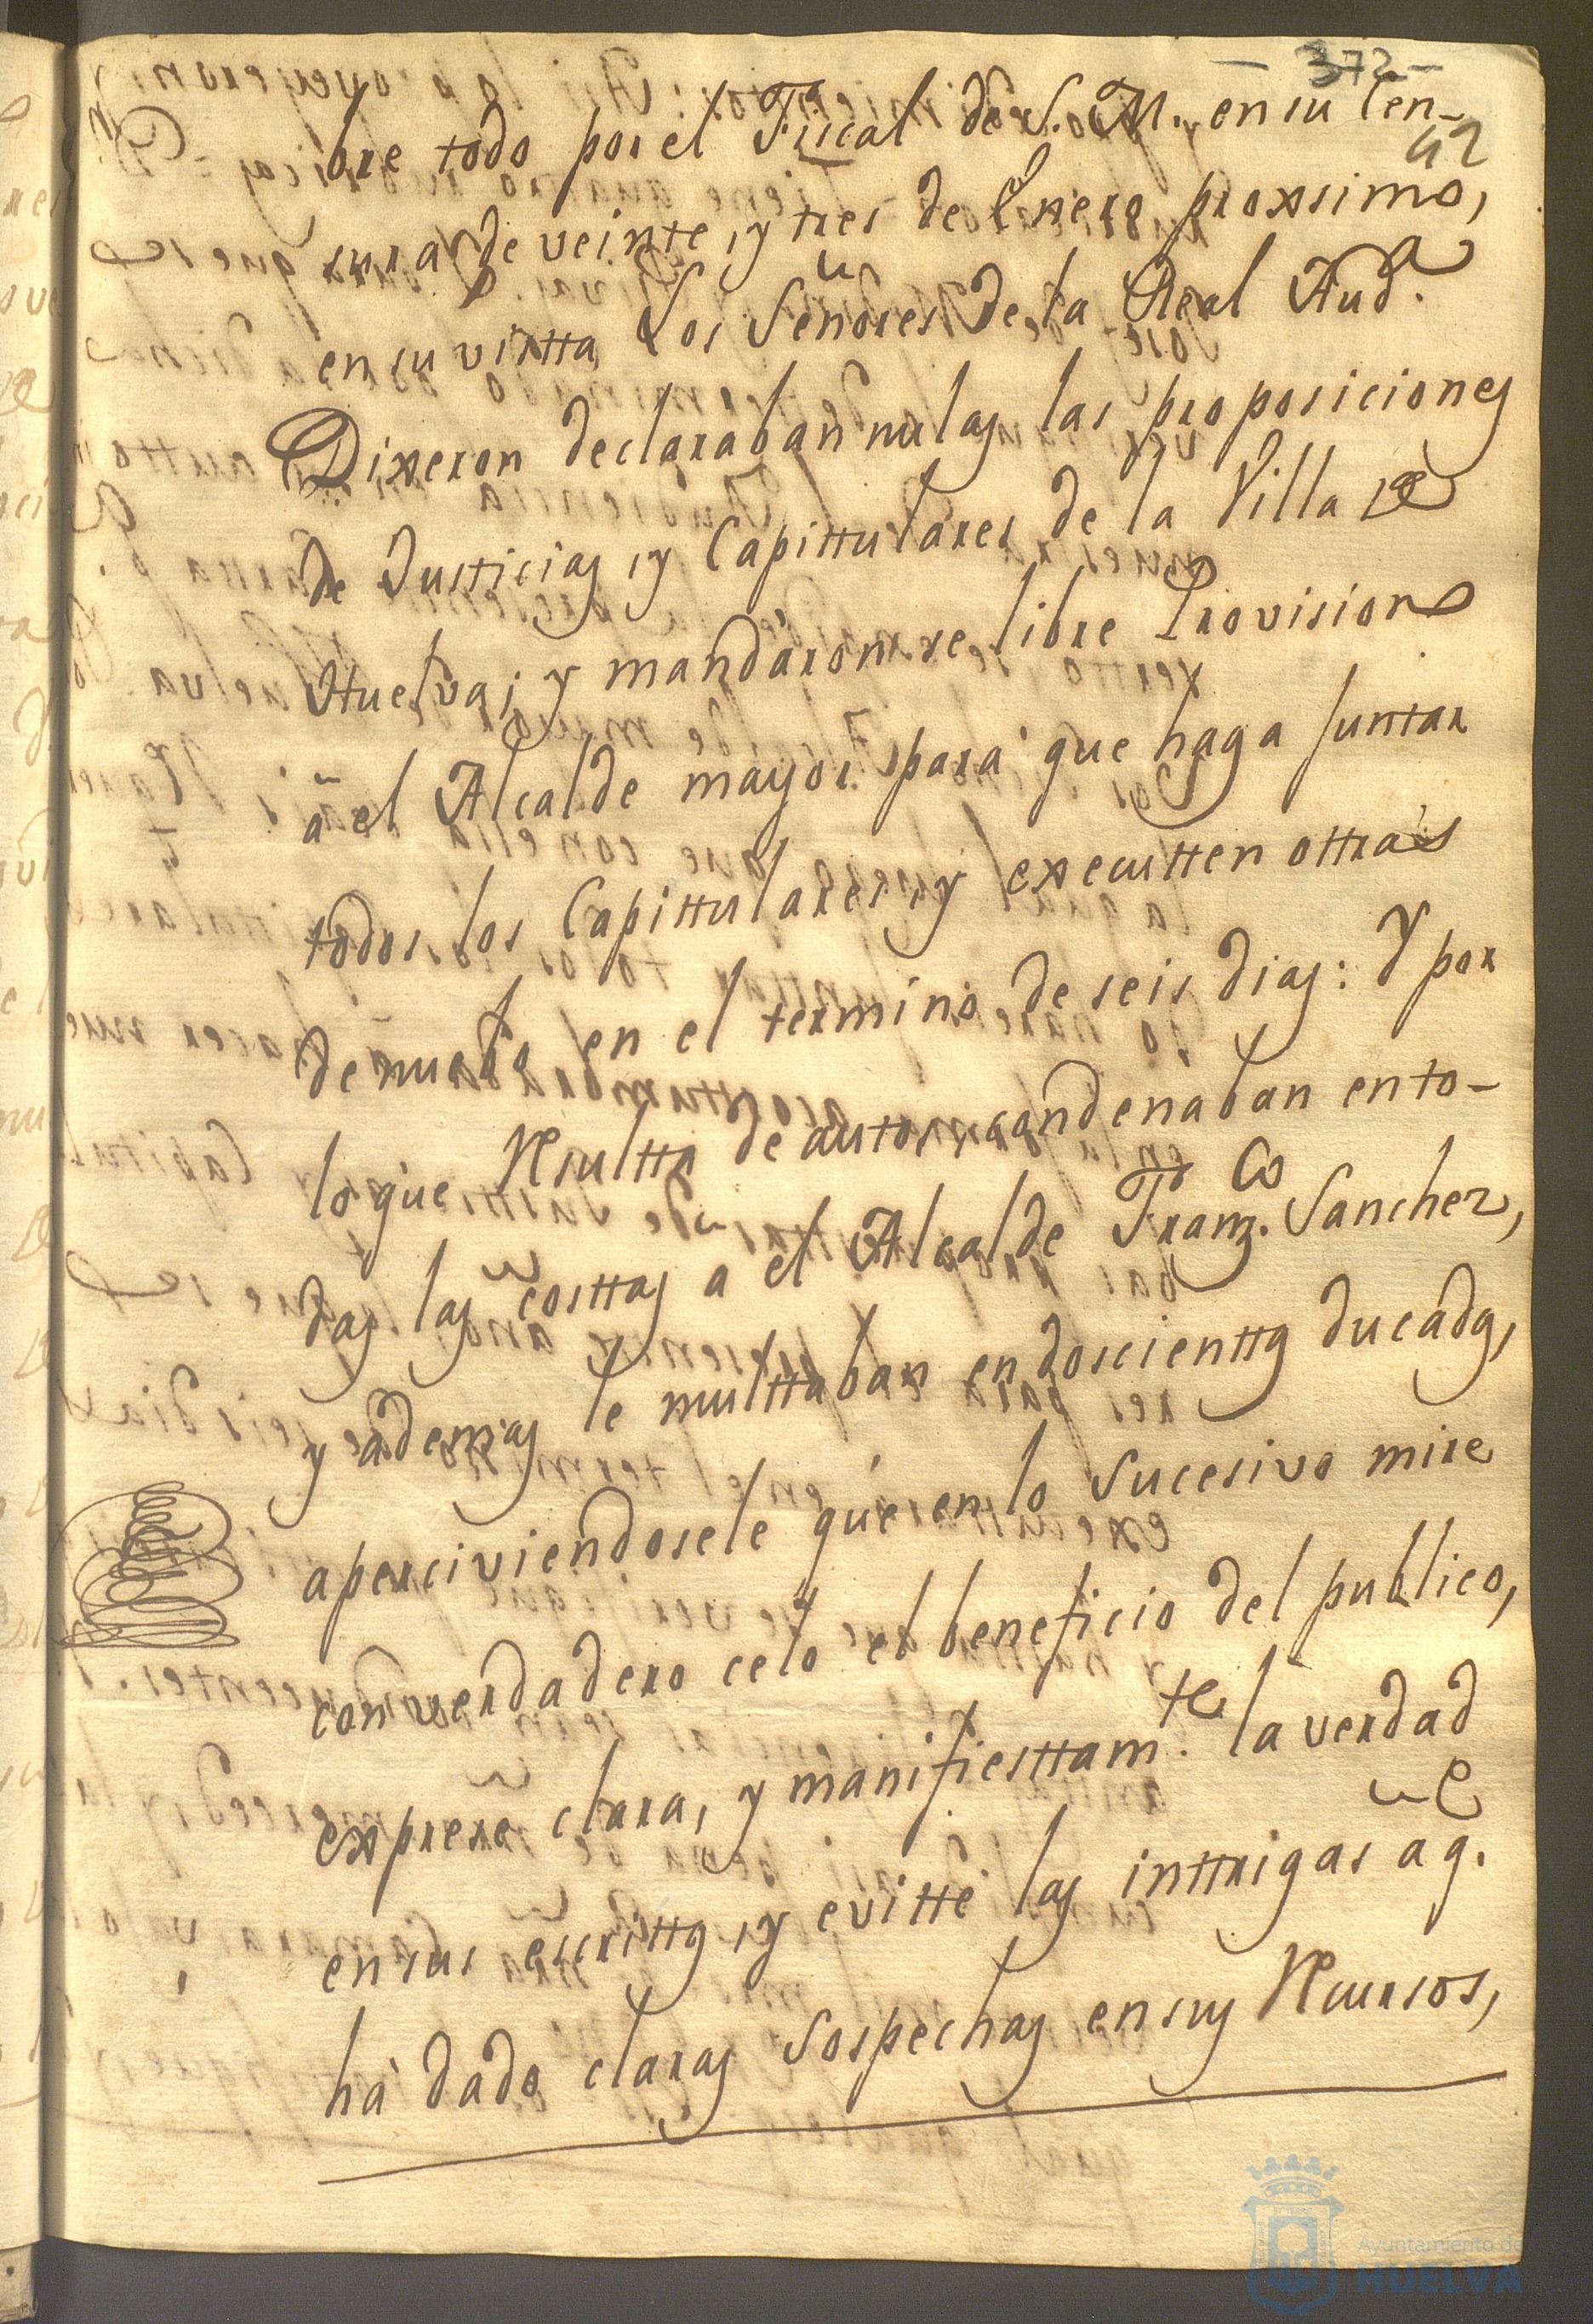 - 372 -
42
bre todo por el Fiscal de S. M. en su Cen-
sura de veinte, y tres de Enero proxsimo,
en su vistta Los Señores de la Real Aud.a
Dixeron declaraban nulas las proposiciones
de Justicias, y Capittulares de la Villa de
Huelva; y mandaron se libre Provision
a el Alcalde mayor para que haga Juntar
todos los Capittulares, y executten ottras
de nuebo en el termino de seis dias: Y por
lo que Resultta de autos, condenaban en to-
das las costtas a el Alcalde Franz.co Sanchez,
y ademas le multtaban en doscienttos ducados,
aperciviendosele que en lo Sucesivo mire
con verdadero celo el beneficio del publico,
exprese clara, y manifiesttam.te la verdad
en sus escrittos, y evitte las inttrigas a q.e
ha dado claras Sospechas en sus Recursos,
Ayuntamiento de
HUELVA